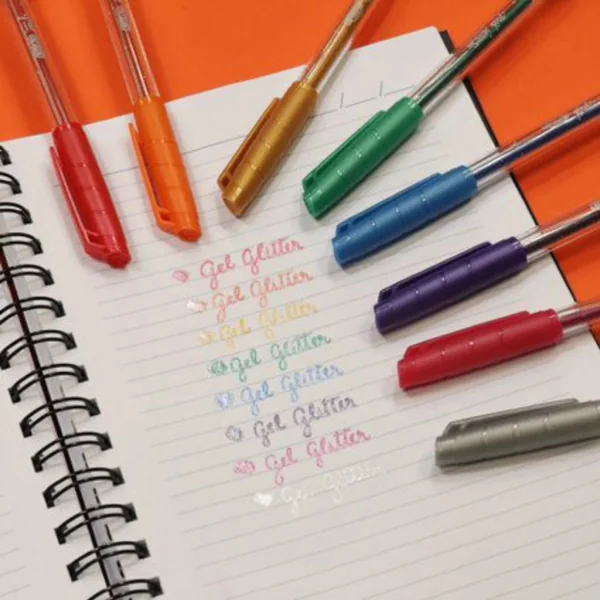 Gel Glitter
Gel Glitter
Gel Glitter
Gel Glitter
Gel Glitter
Gel Glitter
Gel Glitter
Gel Glitter